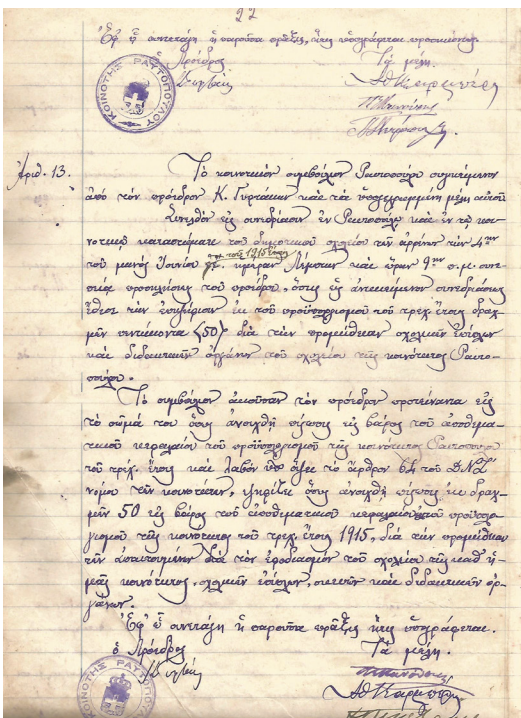 22
Ἐφ' ᾧ συνετάγη ἡ παροῦσα πρᾶξις, ἥτις ὑπογράφεται προσηκόντως.
ὁ Πρόεδρος Τὰ μέλη.
ΚΟΙΝΟΤΗΣ ΡΑΠΤΟΠΟΥΛΟΥ
Ἀριθ. 13. Τὸ κοινοτικὸν συμβούλιον Ραπτοπούλου συγκείμενον
ἀπὸ τὸν πρόεδρον Κ. καὶ τὰ ὑπογεγραμμένα μέλη αὐτοῦ
Συνελθὸν εἰς συνεδρίασιν ἐν Ραπτοπούλῳ καὶ ἐν τῷ κοι-
νοτικῷ καταστήματι τοῦ δημοτικοῦ σχολείου τῶν ἀρρένων τὴν 4ην
τοῦ μηνὸς Ἰουνίου τοῦ 1915 ἔτους ἡμέραν Πέμπτην καὶ ὥραν 9ην π.μ. συνε-
προσκλήσεως τοῦ προέδρου, ὅστις ὡς ἀντικείμενον συνεδριάσεως
ἔθεσε τὴν ἐκ τοῦ προϋπολογισμοῦ τοῦ τρεχ. ἔτους δραχ-
μῶν πεντήκοντα (50) διὰ τὴν προμήθειαν σχολικῶν ἐπίπλων
καὶ διδακτικῶν ὀργάνων τοῦ σχολείου τῆς κοινότητος Ραπτο-
πούλου.
Τὸ συμβούλιον ἀκοῦσαν τὸν πρόεδρον προτείναντα εἰς
τὸ σῶμα του ὅπως ἀνοιχθῇ πίστωσις εἰς βάρος τοῦ ἀποθεμα-
τικοῦ κεφαλαίου τοῦ προϋπολογισμοῦ τῆς κοινότητος Ραπτοπούλου
τοῦ τρέχ. ἔτους καὶ λαβὸν ὑπ' ὄψει τὸ ἄρθρον 64 τοῦ ΔΝΖ'
νόμου τῶν κοινοτήτων, ψηφίζει ὅπως ἀνοιχθῇ πίστωσις ἐκ δραχ-
μῶν 50 εἰς βάρος τοῦ ἀποθεματικοῦ κεφαλαίου τοῦ προϋπολο-
γισμοῦ τῆς κοινότητος τοῦ τρεχ. ἔτους 1915, διὰ τὴν προμήθειαν
τῶν ἀπαιτουμένων διὰ τὸν ἐφοδιασμὸν τοῦ σχολείου τῆς καθ' ἡ-
μᾶς κοινότητος, σχολικῶν ἐπίπλων, σκευῶν καὶ διδακτικῶν ὀρ-
γάνων.
Ἐφ' ᾧ συνετάγη ἡ παροῦσα πρᾶξις ἥτις ὑπογράφεται.
ὁ Πρόεδρος Τὰ μέλη.
ΚΟΙΝΟΤΗΣ ΡΑΠΤΟΠΟΥΛΟΥ